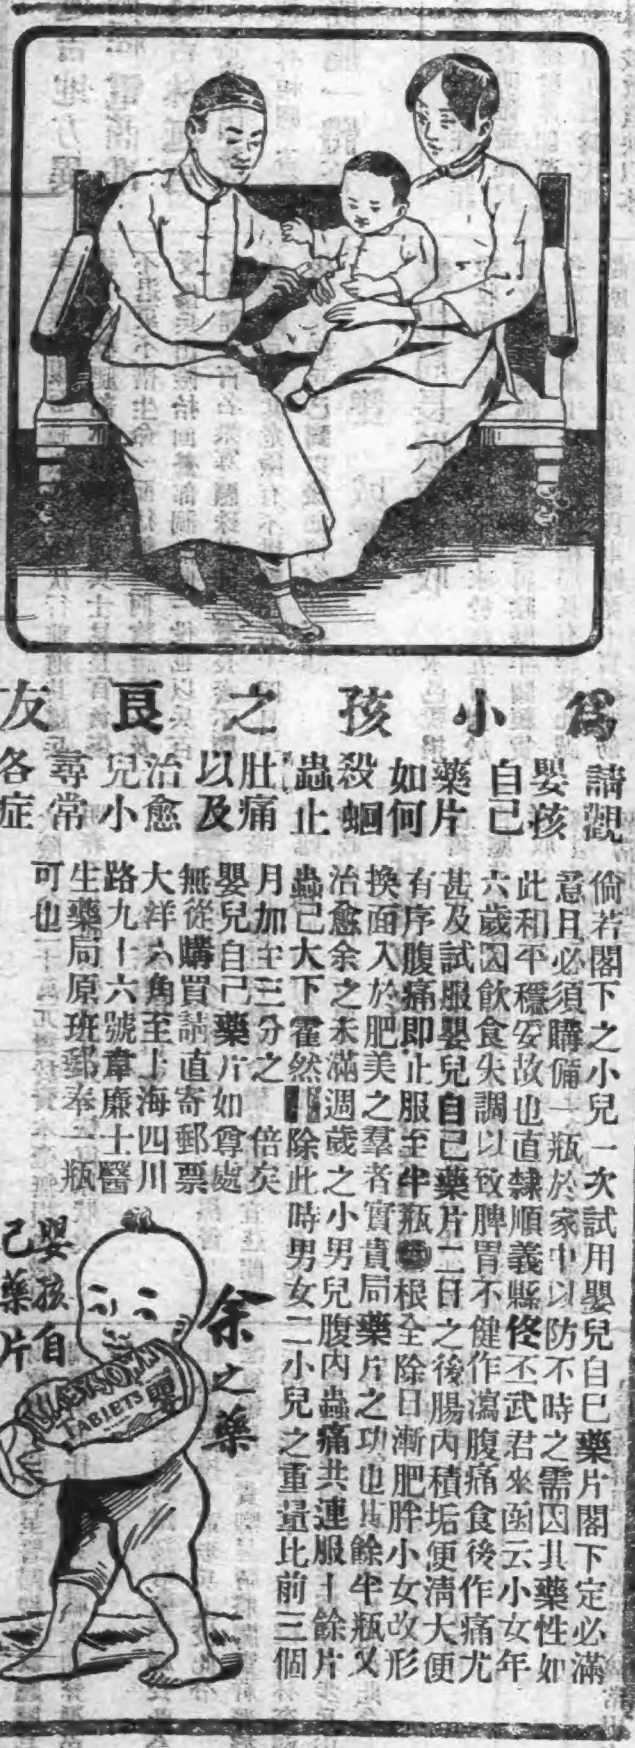 爲小孩之良友
請觀
嬰孩
自己
藥片
如何
殺蛔
蟲止
肚痛
以及
治愈
兒小
尋常
各症
倘若閣下之小兒一次試用嬰兒自己藥片閣下定必滿
意且必須購備一瓶於家中以防不時之需因其藥性如
此和平穩安故也直隸順義縣佟丕武君來函云小女年
六歲因飲食失調以致脾胃不健作瀉腹痛食後作痛尤
甚及試服嬰兒自己藥片二日之後腸內積垢便淸大便
有序腹痛即止服至半瓶根全除日漸肥胖小女改形
換面入於肥美之羣者實貴局藥片之功也其餘半瓶又
治愈余之未滿週歲之小男兒腹內蟲痛共連服十餘片
蟲已大下霍然除此時男女二小兒之重量比前三個
月加至三分之 倍矣
嬰兒自己藥片如尊處
無從購買請直寄郵票
大洋六角至上海四川
路九十六號韋廉士醫
生藥局原班郵奉一瓶
可也
余之藥
嬰孩自
己藥片
BABY'S OWN
TABLETS
嬰